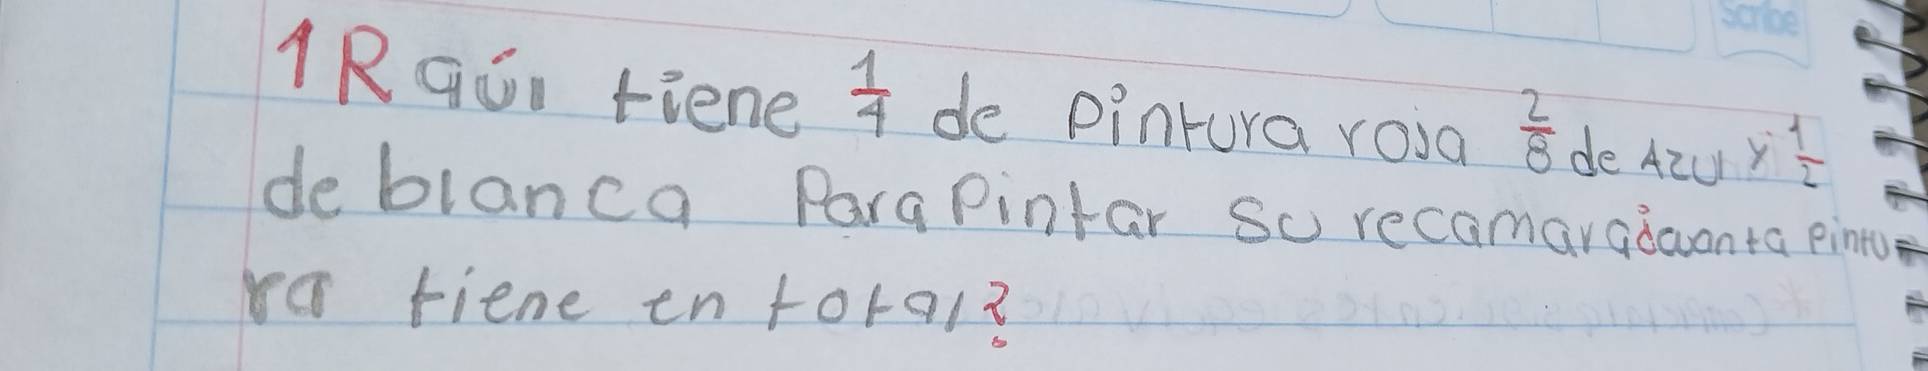 Scribe
1 Raúl tiene 1/4 de pintura rosa 2/8 de Azul y 1/2
de blanca Para Pintar su recamara ¿cuanta pintu-
ra tiene en total?